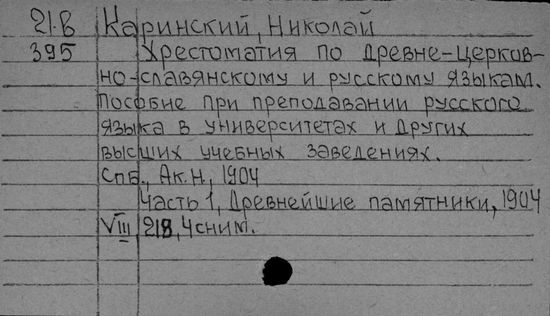 21.В Каринский, Николай
395 Хрестоматия по древне-церков-
но-славянскому и русскому языкам.
Пособие при преподавании русского
языка в университетах и других
высших учебных заведениях.
Спб., Ак.Н., 1904
Часть 1, Древнейшие памятники, 1904
VIII, 218, 4 сним.